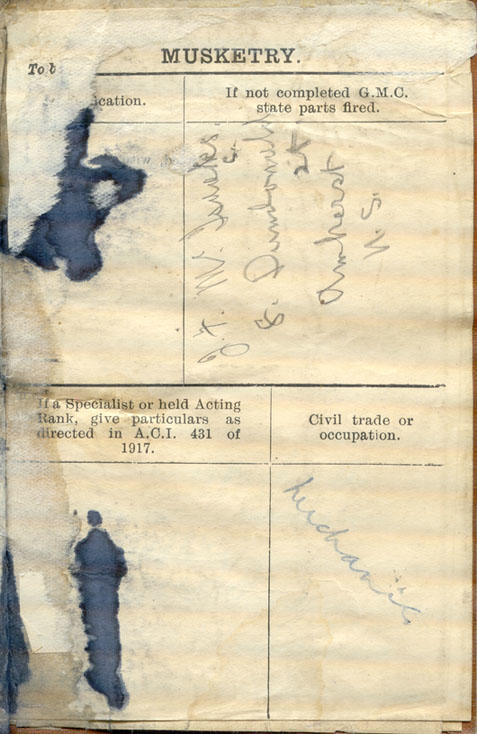 MUSKETRY.
To b
ication.
If not completed G.M.C.
state parts fired.
8. Dundonald
St
Amherst
N.S.
If a Specialist or held Acting
Rank, give particulars as
directed in A.C.I. 431 of
1917.
Civil trade or
occupation.
Mechanic